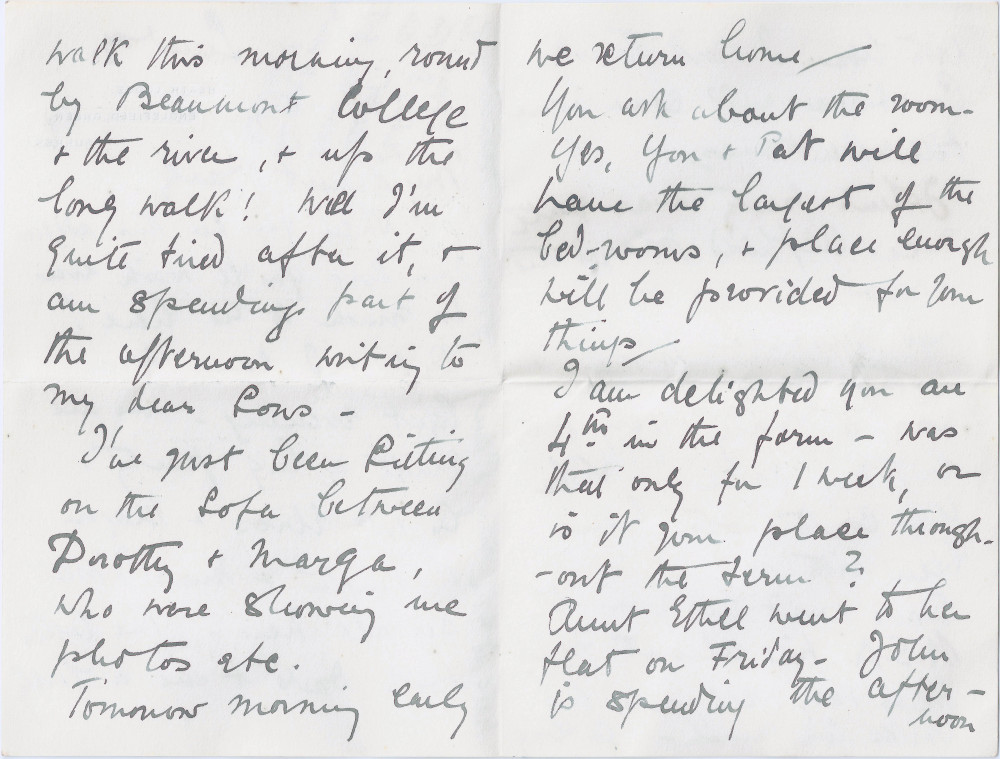 walk this morning, round
by Beaumont College
+ the river, + up the
long walk! Well I'm
quite tired after it, +
am spending part of
the afternoon writing to
my dear Sons -
I've just been sitting
on the Sofa between
Dorothy + Marga,
who were showing me
photos etc.
Tomorrow morning early
we return home
You ask about the room -
Yes, You + Pat will
have the largest of the
bed-rooms, + place enough
will be provided for your
things
I am delighted you are
4th in the form - was
that only for 1 week, or
is it your place through-
-out the term?
Aunt Ethel went to her
flat on Friday - John
is spending the after-
noon